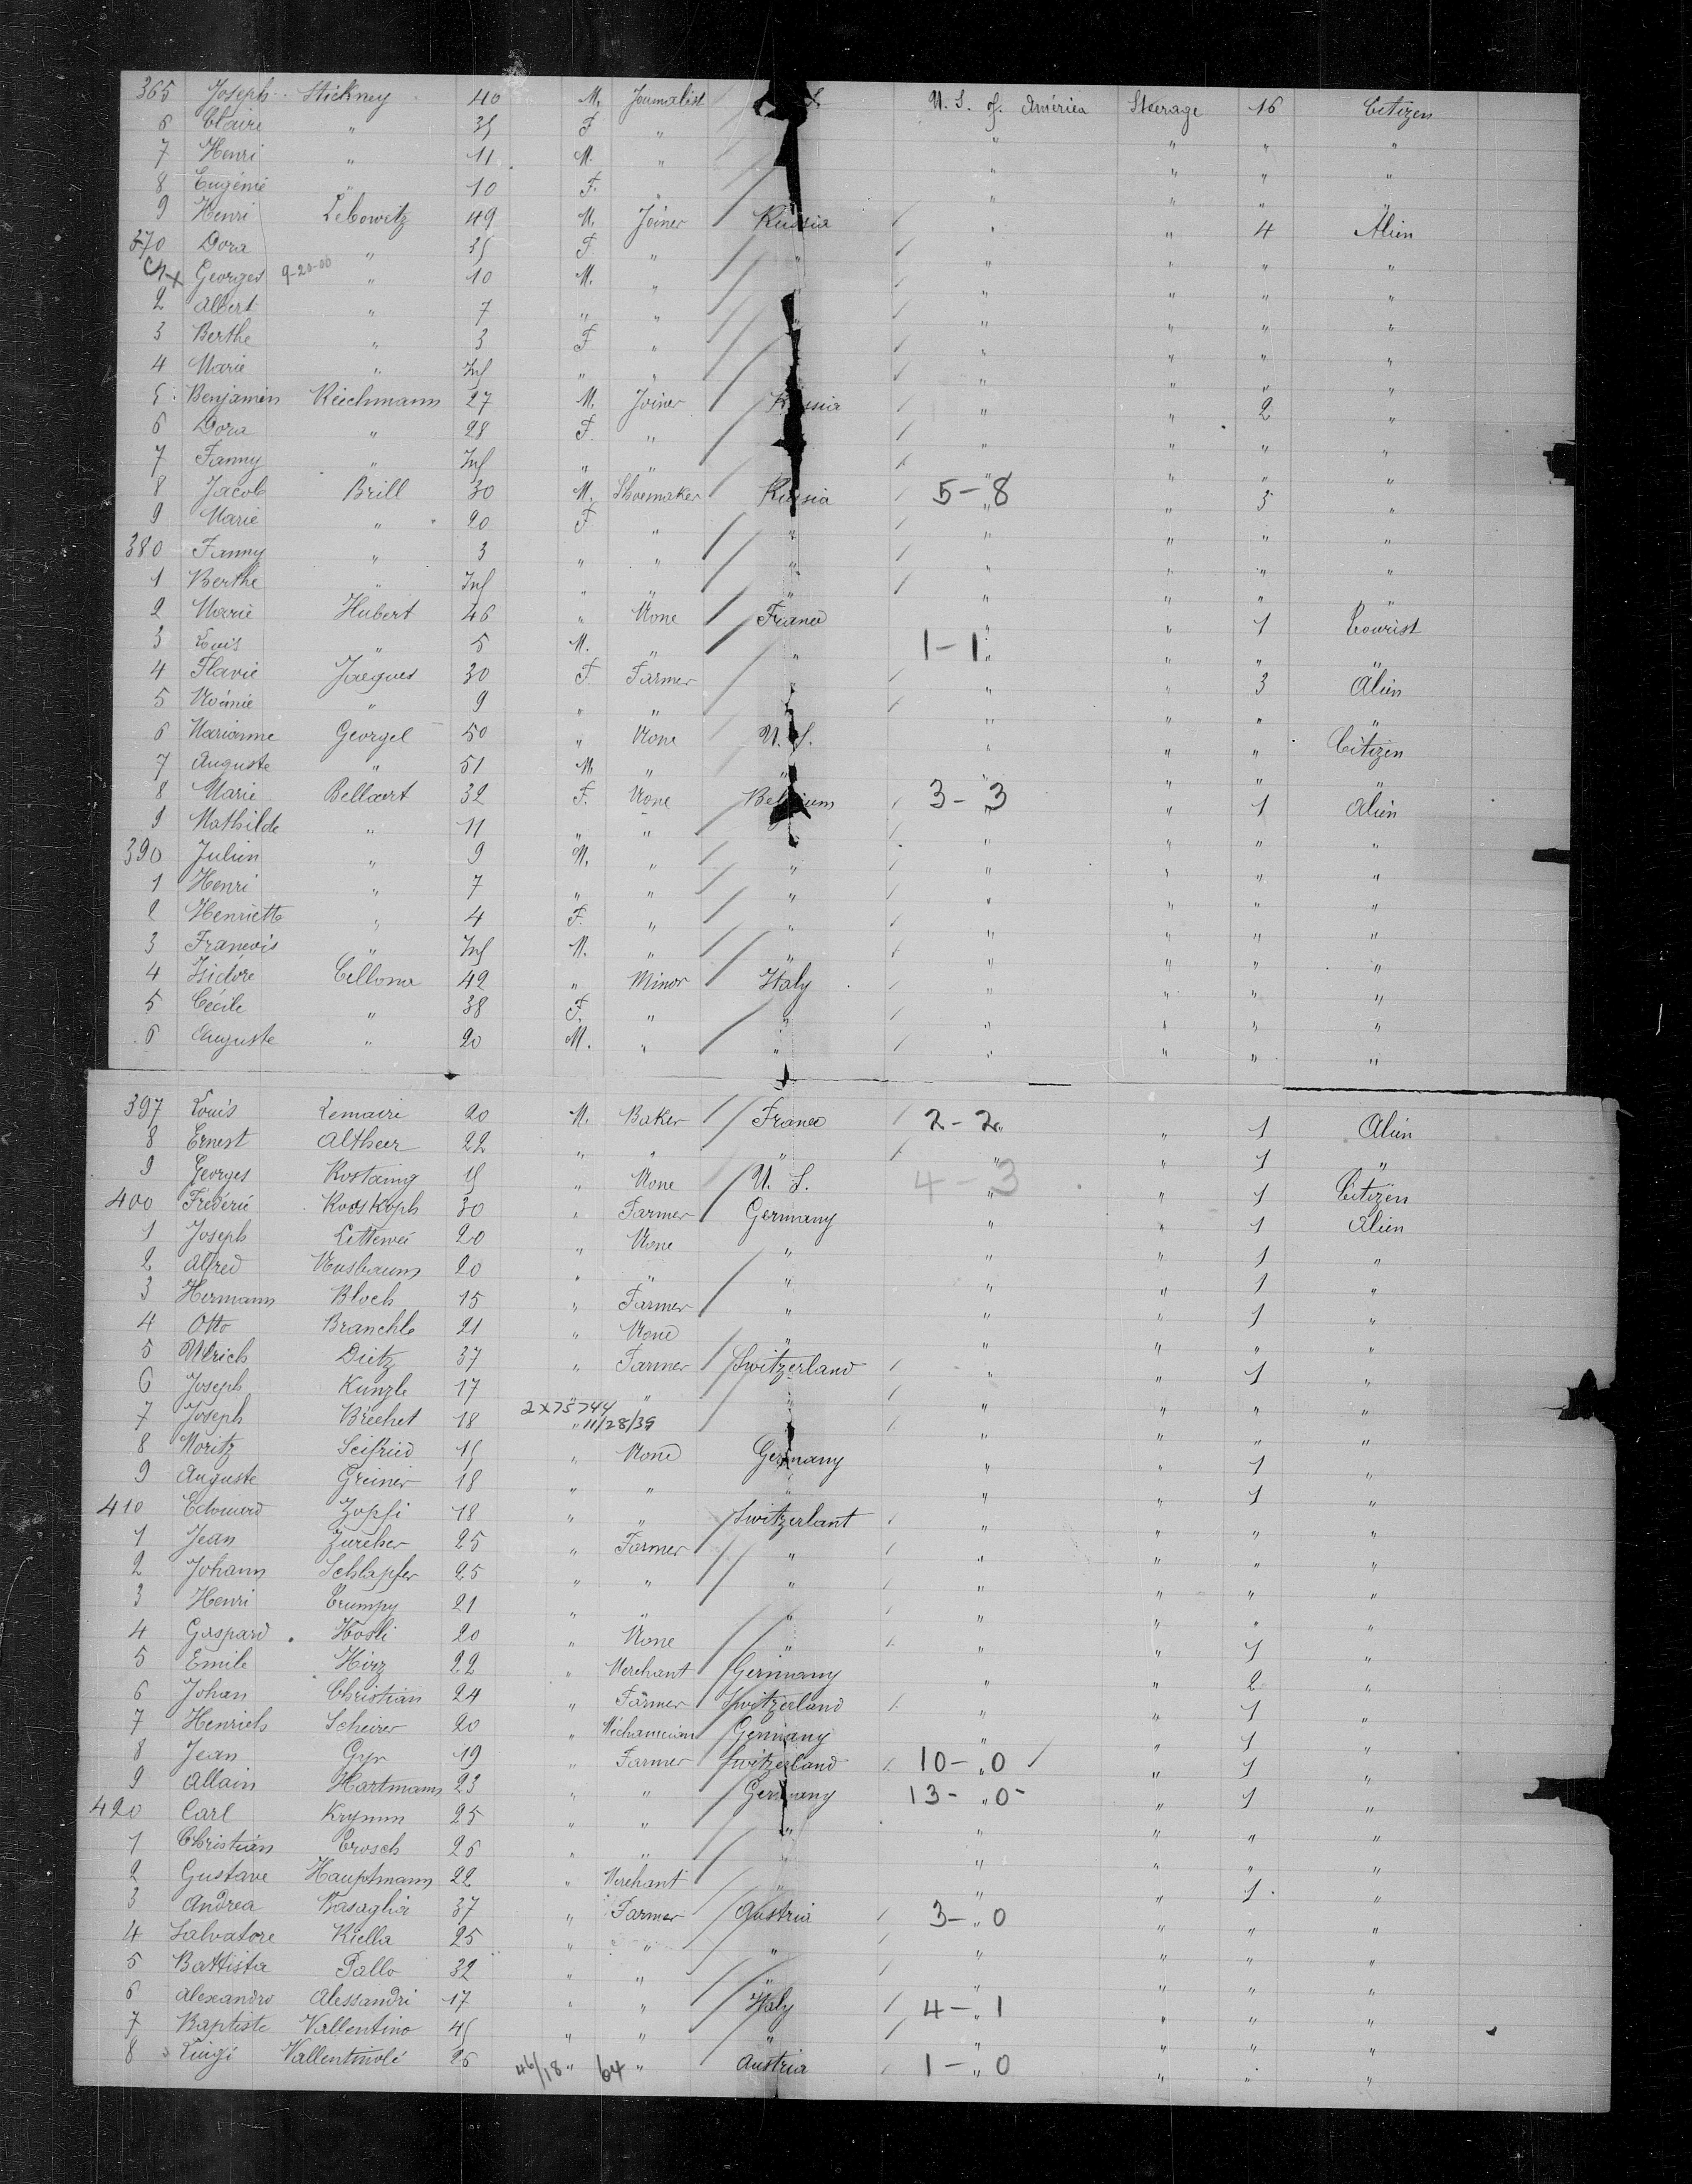 365 Joseph Stickney 40 M. Journalist S. U. S. of América Steerage 16 Citizen
6 Claire " 35 F " " " " "
7 Henri " 11 M. " " " " "
8 Eugénie " 10 F. " " " " "
9 Henri Lebowitz 49 M. Joiner Russia " " 4 Alien
370 Dora " 35 F. " " " " " "
Georges 9-20-00 " 10 M. " " " " " "
2 Albert " 7 " " " " " " "
3 Berthe " 3 F " " " " " "
4 Marie " Inf " " " " " " "
5 Benjamin Reichmann 27 M. Joiner Russia " " 2 "
6 Dora " 28 F. " " " " " "
7 Fanny " Inf " " " " " " "
8 Jacob Brill 30 M. Shoemaker Russia 5-8 " " 3 "
9 Marie " 20 F " " " " " "
380 Fanny " 3 " " " " " " "
1 Berthe " Inf " " " " " " "
2 Marie Hubert 46 " None France " " 1 Tourist
3 Louis " 5 M. " " 1-1 " " " "
4 Flavie Jacques 30 F. Farmer " " " 3 Alien
5 Noémie " 9 " " " " " " "
6 Marianne Georgel 50 " None U. S. " " " Citizen
7 Auguste " 51 M. " " " " " "
8 Marie Bellaert 32 F. None Belgium 3-3 " " 1 Alien
9 Mathilde " 11 " " " " " " "
390 Julien " 9 M. " " " " " "
1 Henri " 7 " " " " " " "
2 Henriette " 4 F. " " " " " "
3 Francois " Inf M. " " " " " "
4 Isidore Cellona 42 " Minor Italy " " " "
5 Cécile " 38 F. " " " " " "
6 Auguste " 20 M. " " " " " "
397 Louis Lemaire 20 M. Baker France 2-2 " " 1 Alien
8 Ernest Altheer 22 " " " " " 1 "
9 Georges Rostaing 15 " None U. S. 4-3 " " 1 Citizen
400 Fréderic Rooskoph 30 " Farmer Germany " " 1 Alien
1 Joseph 20 " None " " " 1 "
2 Alfred Nusbaum 20 " " " " " 1 "
3 Hermann Bloch 15 " Farmer " " " 1 "
4 Otto Branchle 21 " None " " " " "
5 Ulrich Dietz 37 " Farmer Switzerland " " 1 "
6 Joseph Kunzle 17 " " " " " " "
7 Joseph Bréchet 18 2x75744 11/28/39 " " " " " "
8 Moritz Seifried 15 " None Germany " " 1 "
9 Auguste Greiner 18 " " " " " 1 "
410 Edouard Zopfi 18 " " Switzerlant " " " "
1 Jean Zurcher 25 " Farmer " " " " "
2 Johann Schlapfer 25 " " " " " " "
3 Henri Trumpy 21 " " " " " " "
4 Gaspard Hosli 20 " None " " " 1 "
5 Emile Hirz 22 " Merchant Germany " " 2 "
6 Johan Christian 24 " Farmer Switzerland " " 1 "
7 Henrich Scheirer 20 " Méchanician Germany " " 1 "
8 Jean Gyr 19 " Farmer Switzerland 10-0 " " 1 "
9 Allain Hartmann 23 " " Germany 13-0- " " 1 "
420 Carl Krymm 25 " " " " " " "
1 Christian Trosch 26 " " " " " " "
2 Gustave Hauptmann 22 " Merchant " " " 1 "
3 Andrea Basaglia 37 " Farmer Austria 3-0 " " " "
4 Salvatore Kiella 25 " " " " " " "
5 Battista Pallo 32 " " " " " " "
6 Alexandro Alessandri 17 " " Italy 4-1 " " " "
7 Baptiste Vallentino 45 " " " " " " "
8 Luigi Vallentinoli 26 46/18 " 64 " Austria 1-0 " " " "